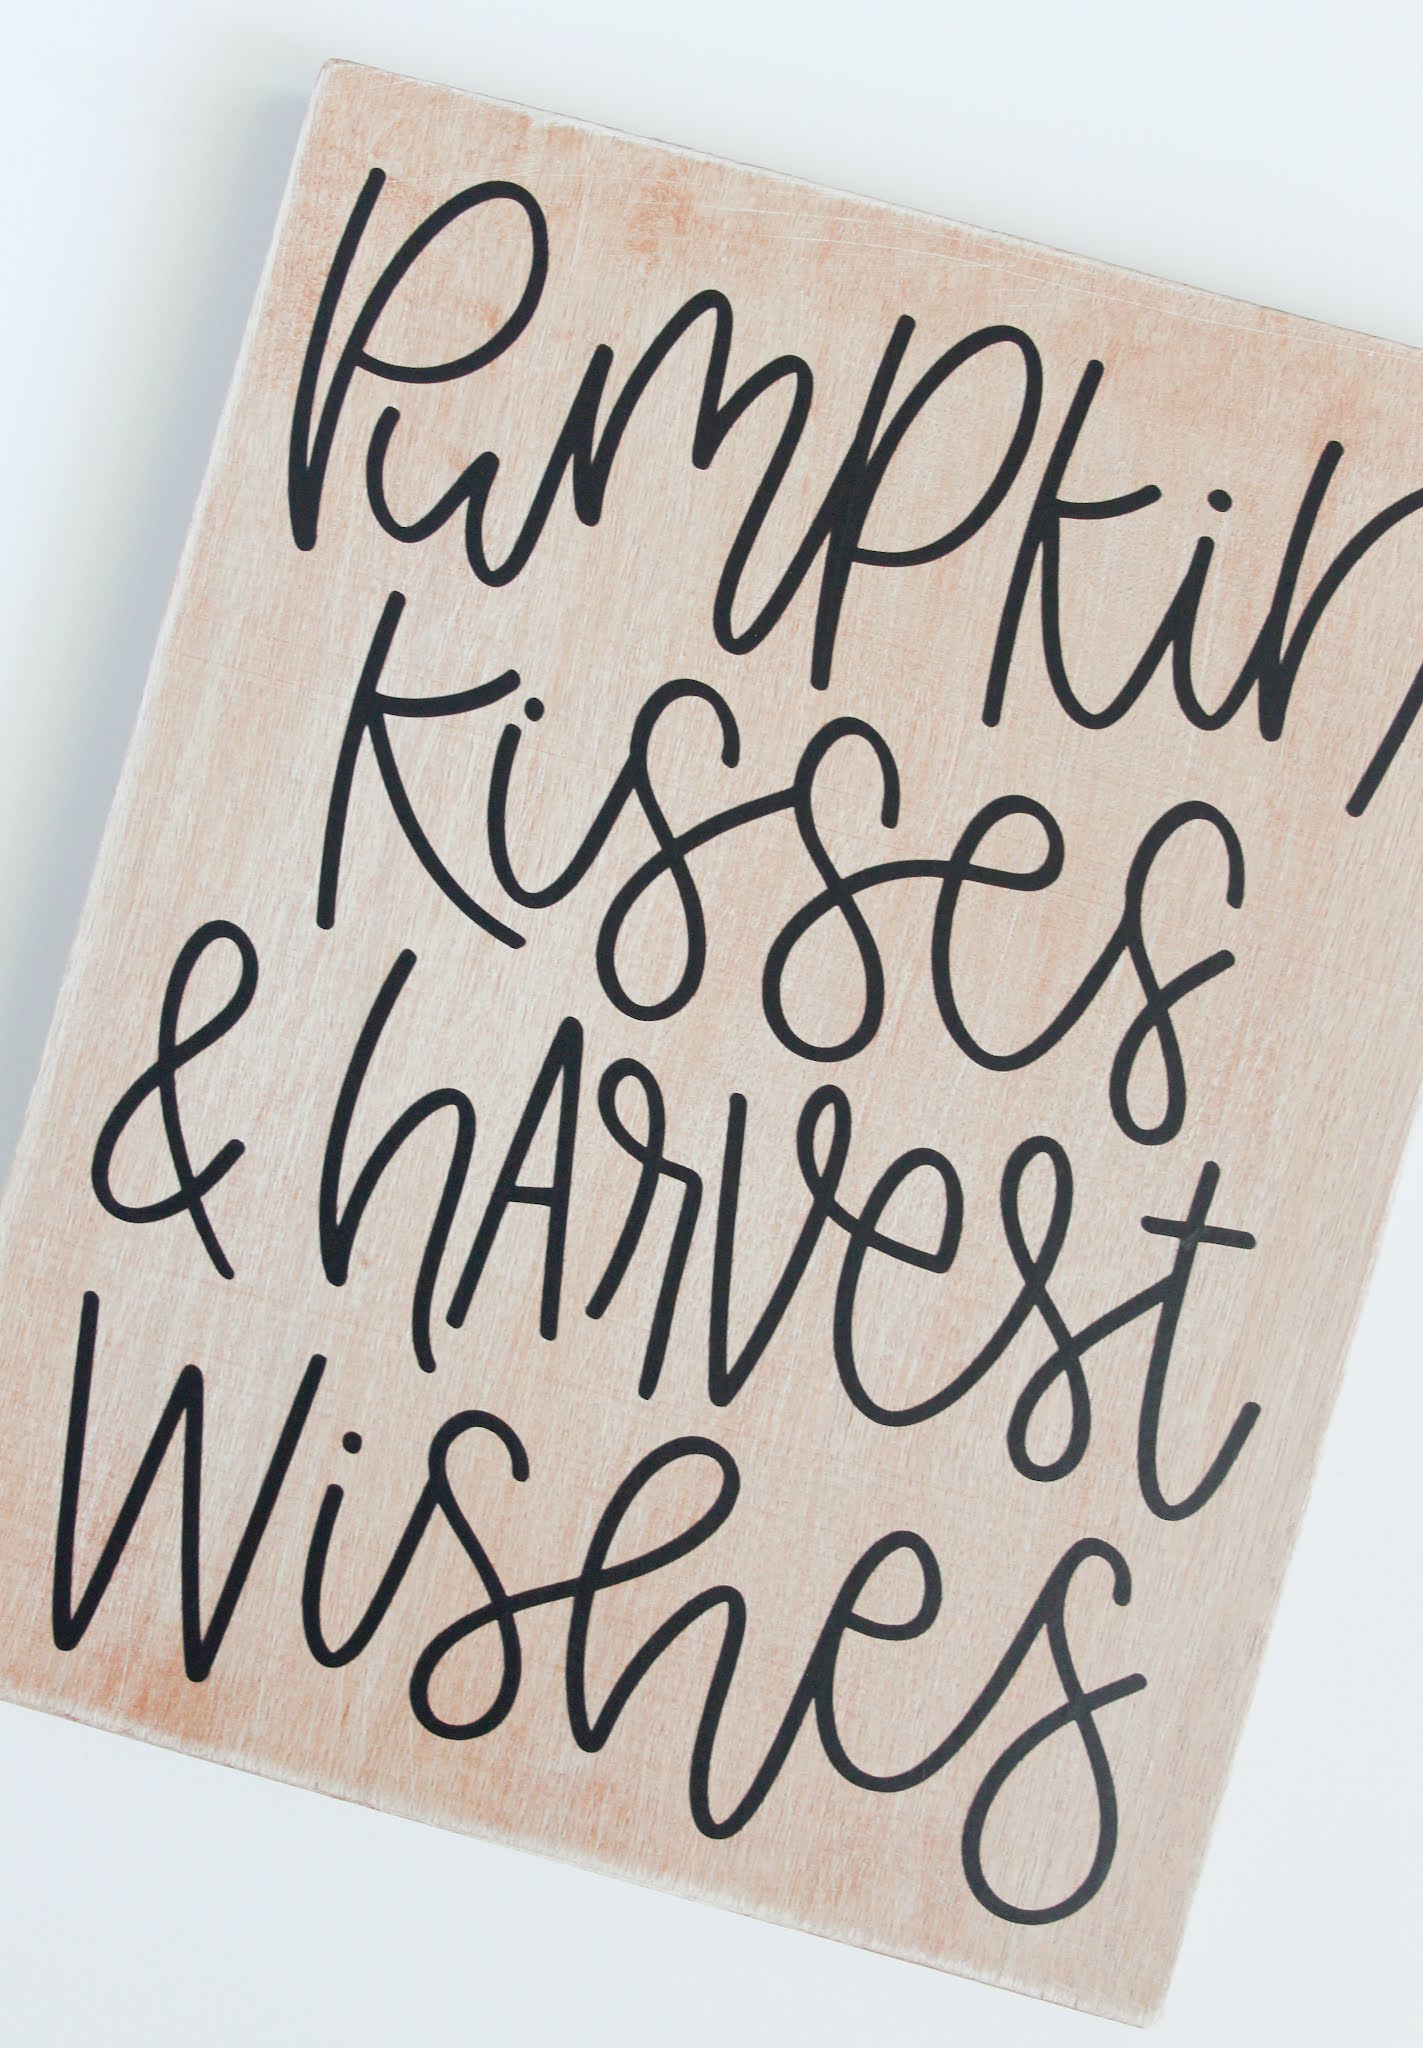 Pumpkin
Kisses
& hARvest
Wishes